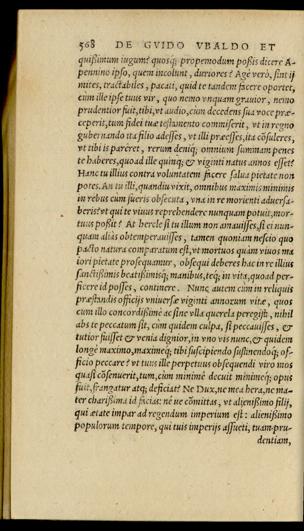 568 DE GVIDO VBALDO ET
quißimum iugum? quosq; propemodum poßis dicere A-
pennino ipso, quem incolunt, duriores? Agè verò, sint ij
mites, tractabiles, pacati, quid te tandem facere oportet,
cùm ille ipse tuus vir, quo nemo vnquam grauior, nemo
prudentior fuit, tibi, vt audio, cùm decedens sua voce præ-
ceperit, tum fidei tuæ testamento commiserit, vt in regno
gubernando ita filio adesses, vt illi præesses, ita cõsuleres,
vt tibi is pareret, rerum deniq; omnium summam penes
te haberes, quo ad ille quinq; & viginti natus annos esset?
Hanc tu illius contra voluntatem facere salua pietate non
potes. An tu illi, quandiu vixit, omnibus maximis minimis
in rebus cum fueris obsecuta, vna in re morienti aduersa-
beris? vt qui te viuus reprehendere nunquam potuit, mor-
tuus poßit? At hercle si tu illum non amauisses, si ei nun-
quam aliàs obtemperauisses, tamen quoniam nescio quo
pacto natura comparatum est, vt mortuos quàm viuos ma
iori pietate prosequamur, obsequi deberes hac in re illius
sanctißimis beatißimisq; manibus, teq; in vita, quoad per-
ficere id posses, continere. Nunc autem cùm in reliquis
præstandis officijs vniuersæ viginti annorum vitæ, quos
cum illo concordißimè ac sine vlla querela peregisti, nihil
abs te peccatum sit, cùm quidem culpa, si peccauisses, &
tutior fuisset & venia dignior, in vno vis nunc, & quidem
longè maximo, maximeq; tibi suscipiendo sustinendoq; of-
ficio peccare? vt tuus ille perpetuus obsequendi viro mos
quasi cõsenuerit, tum, cùm minimè decuit minimeq; opus
fuit, frangatur atq; deficiat? Ne Dux, ne mea hera, ne ma-
ter charißima id facias: nè ue cõmittas, vt alienißimo filij,
qui ætate impar ad regendum imperium est: alienißimo
populorum tempore, qui tuis imperijs assueti, tuam pru-
dentiam,